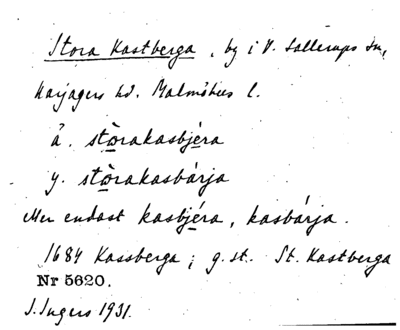 Stora Kastberga, by i V. Sallerups sn,
Harjagers hd. Malmöhus l.
ä. stòrakasbjéra
y. stòrakasbárja
Mer endast kasbjéra, kasbárja.
1684 Kassberga; g. st. St. Kastberga
Nr 5620.
J. Ingers 1931.